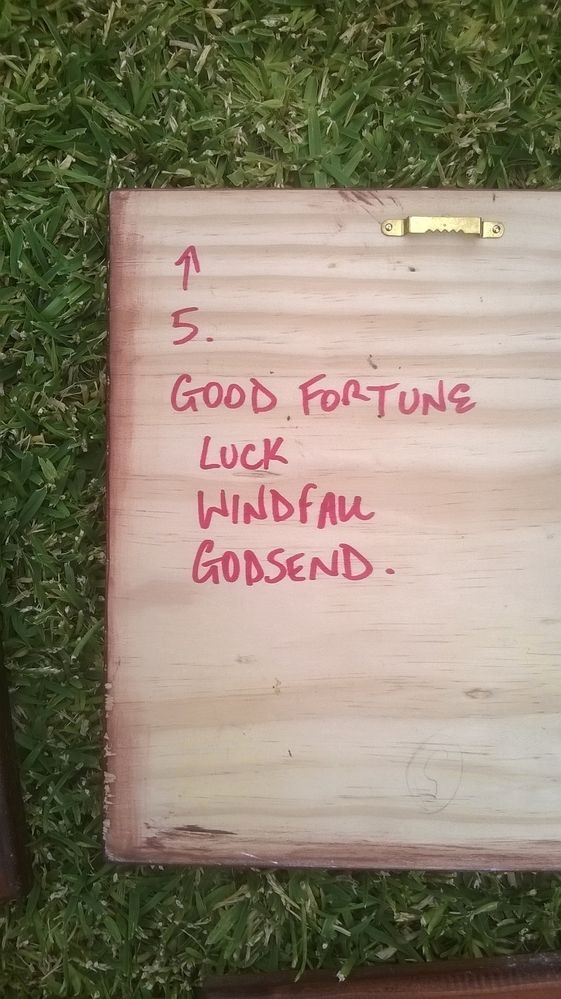 ↑
5.
GOOD FORTUNE
LUCK
WINDFALL
GODSEND.
5